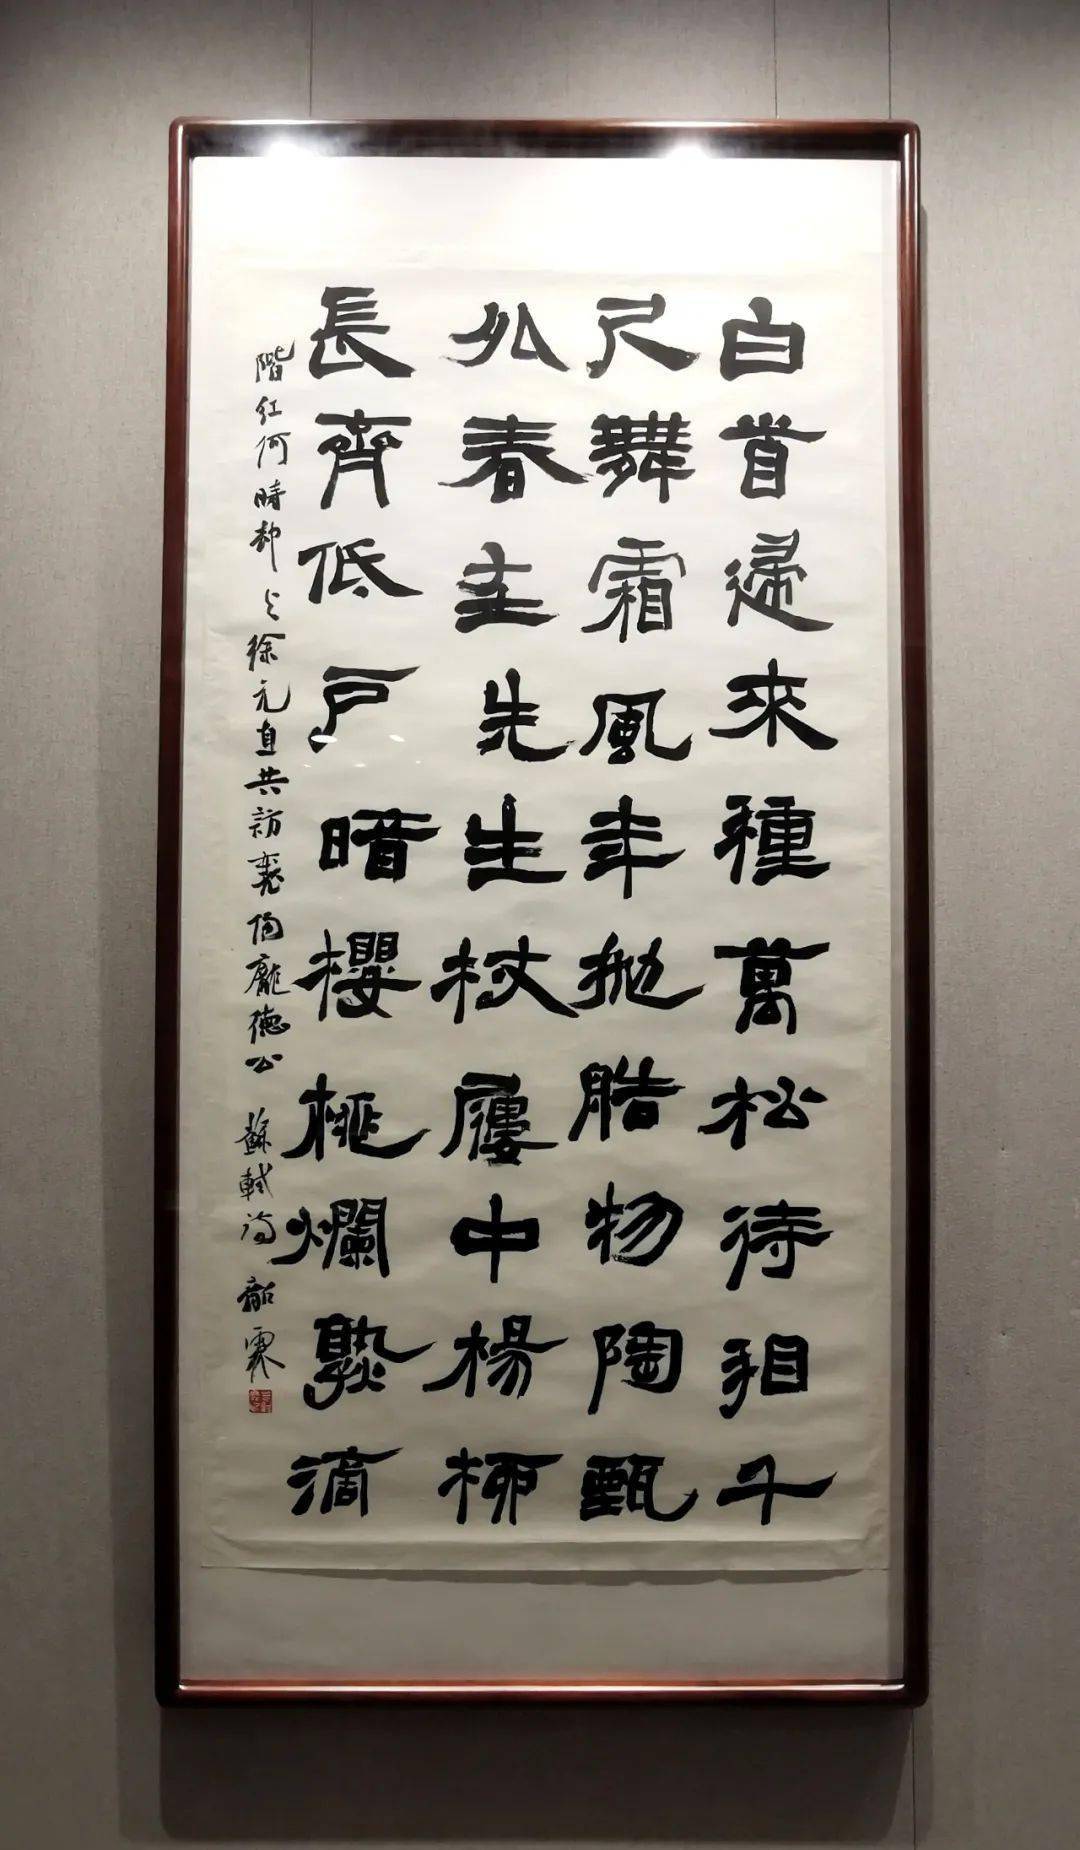 白首歸來種萬松待看千
尺舞霜風年拋艁物陶甄
外春在先生杖屨中楊柳
長齊低戶暗櫻桃爛熟滴
階紅何時却与徐元直共訪襄陽龐德公 蘇軾詩